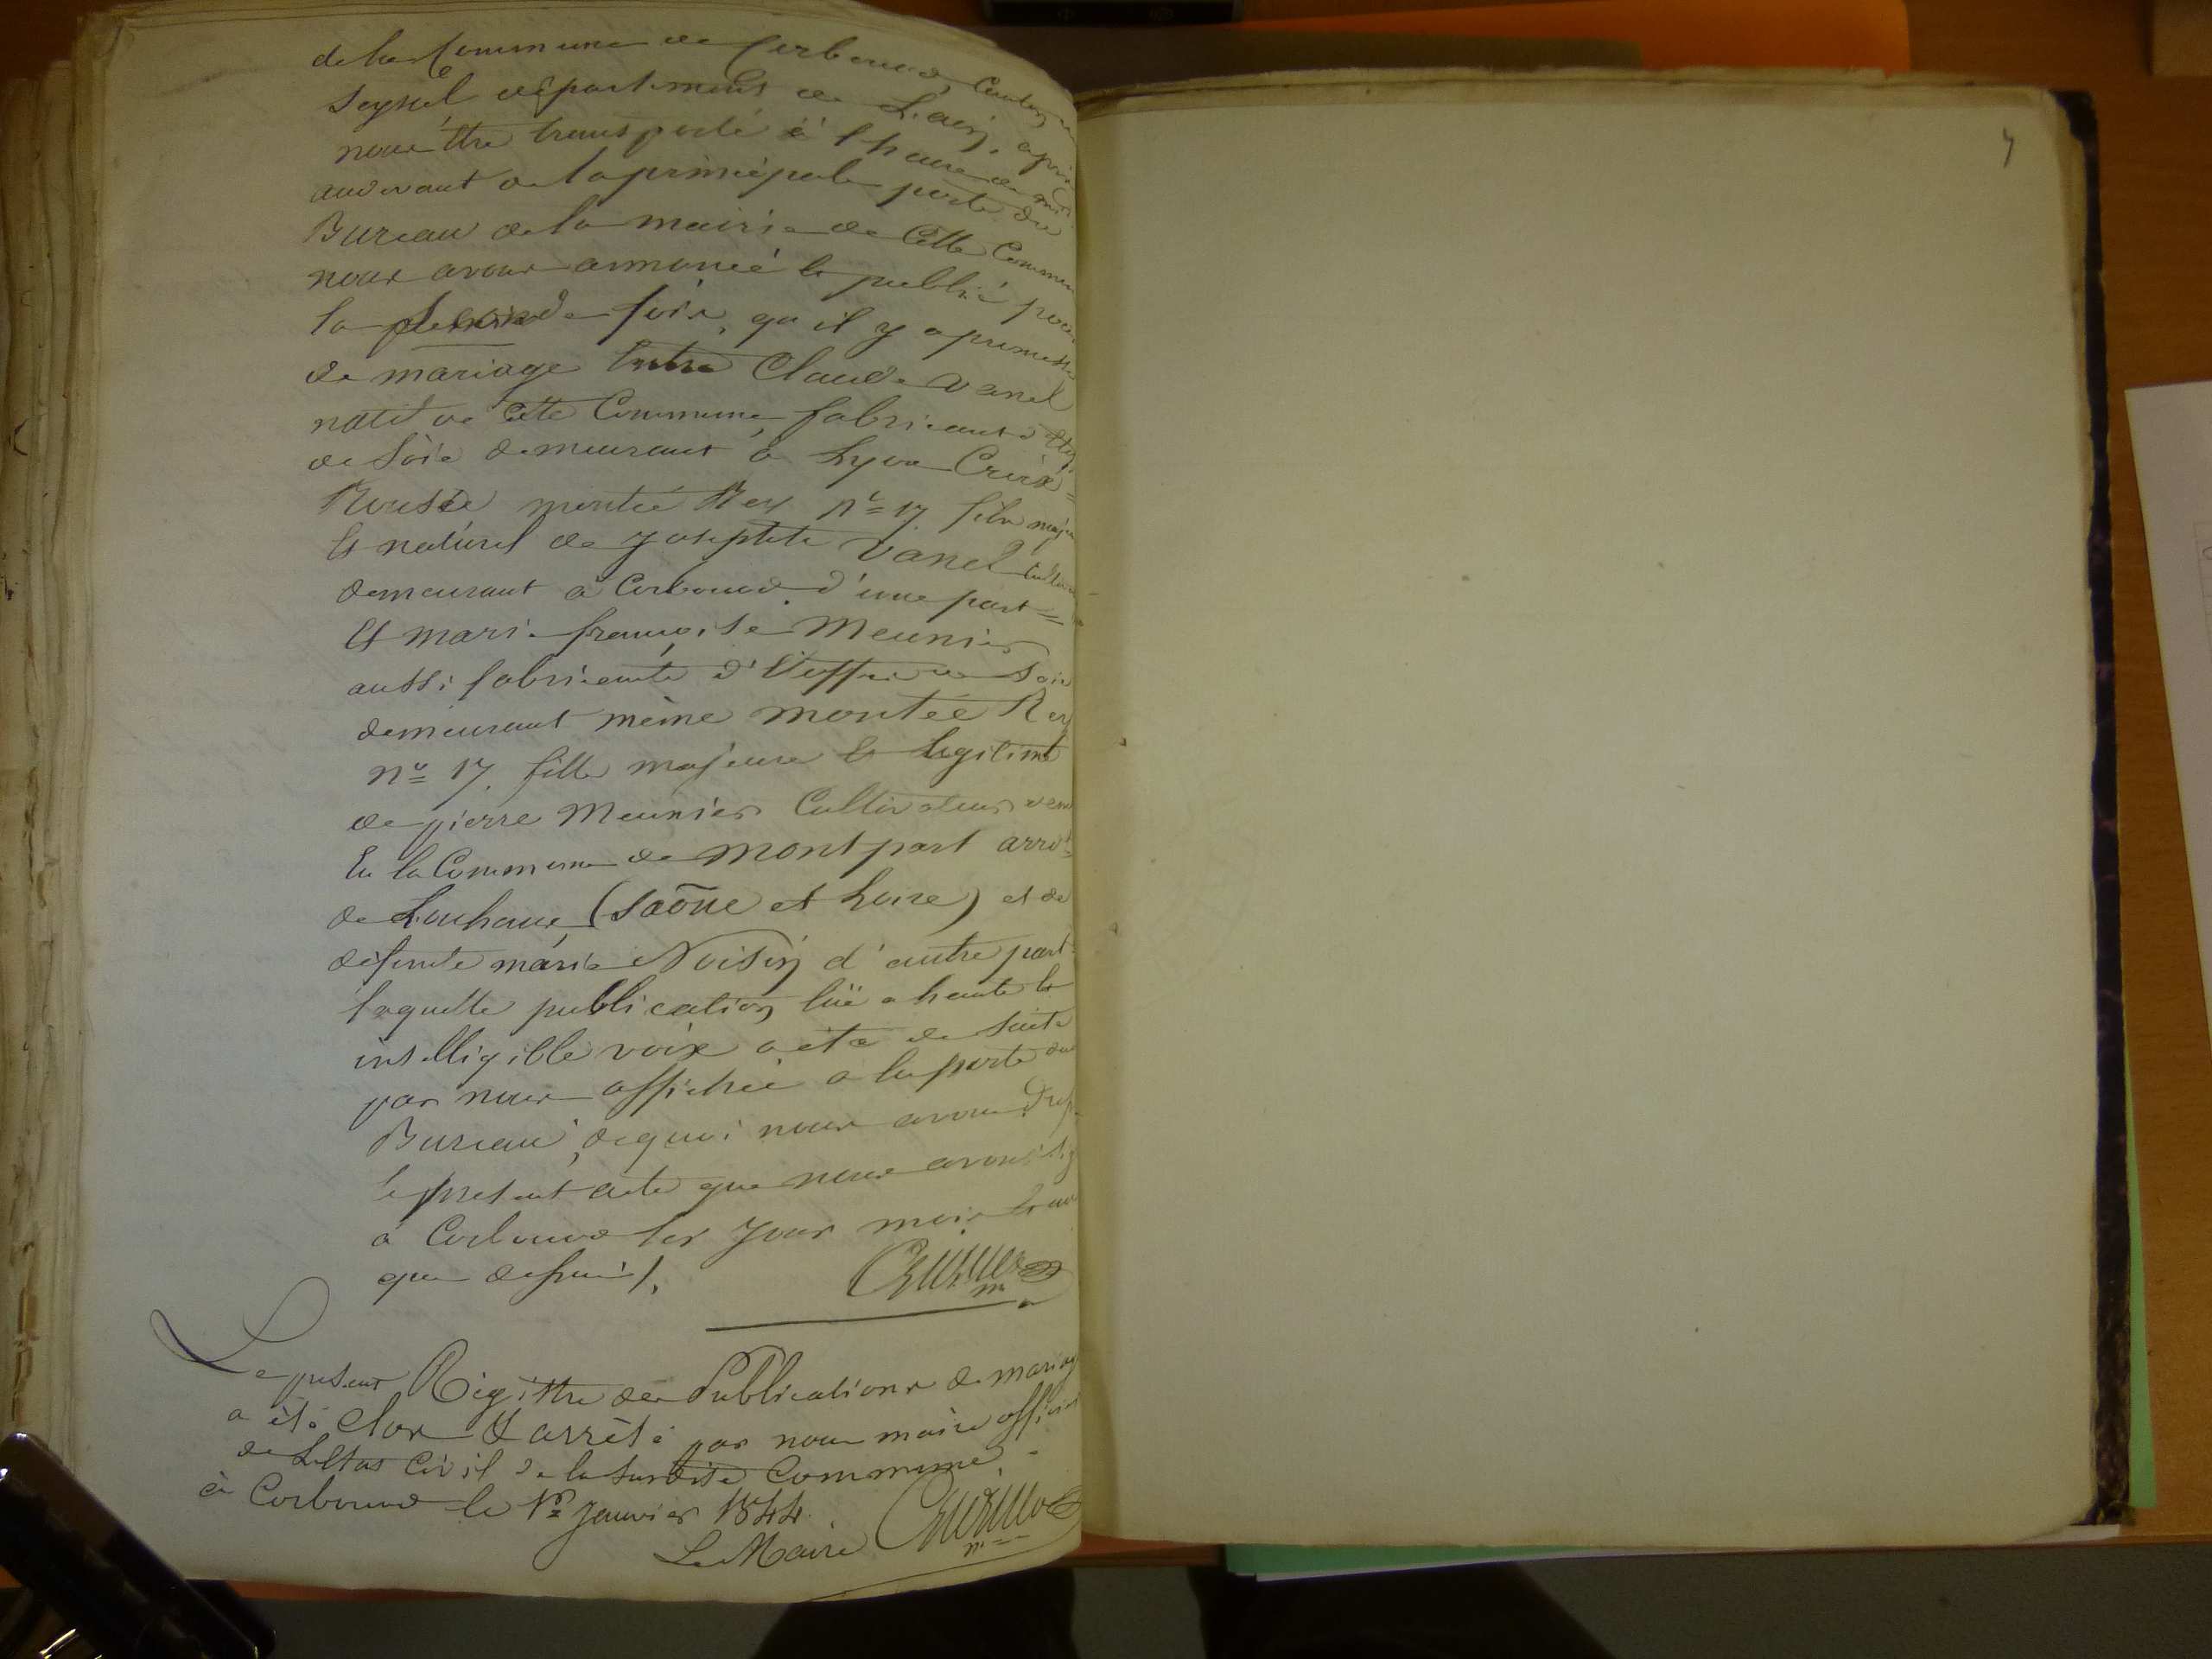 de la Commune de Corbonod, Canton de
Seyssel département de L'ain, après
nous être transporté à l'heure de midi
audevant de la principale porte du
Bureau de la mairie de Cette Commune
nous avons annoncé et publié pour
la seconde fois, qu'il y a promesse
de mariage Entre Claude Vanel
natif de Cette Commune, fabricant d'étoffe
de Soie demeurant à Lyon Croix=
Rousse montée Rey n.º 17. fils majeur
Et naturel de Josephte Vanel
demeurant à Corbonod d'une part=
Et marie françoise Meunier
aussi fabricante d'Etoffe de Soie
demeurant même montée Rey
n.º 17. fille majeure et Legitime
de pierre Meunier Cultivateur dem
En la Commune de montpart arrd.t
de Louhans, (Saône et Loire) et de
defunte marie Noisin d'autre part.
laquelle publication lüe a haute et
intelligible voix a été de suite
par nous affichée a la porte du
Bureau, de quoi nous avons
le present acte que nous avons
à Corbonod les jour mois et an
que dessus /.
Le present Régistre des Publications de mariage
a été Clos & arrêté par nous maire officier
de L'Etat Civil de la Susdite Commune.
à Corbonod le 1er Janvier 1844.
Le Maire
7